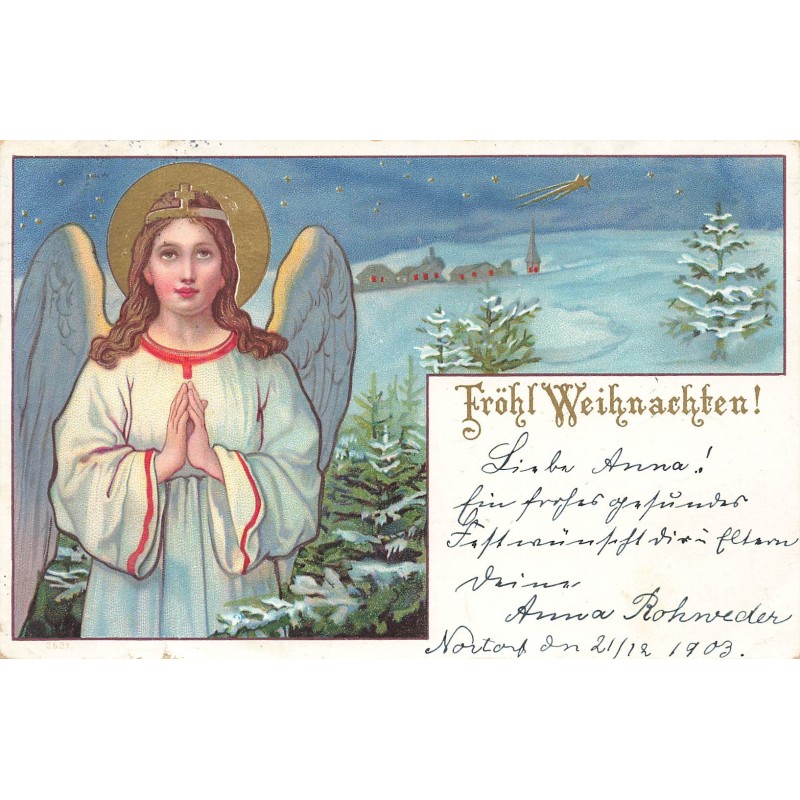 Fröhl Weihnachten!
Liebe Anna!
Ein frohes gesundes
Fest wünscht dir u Eltern
Deine
Anna Rohweder
Nortorf den 21/12 1903.